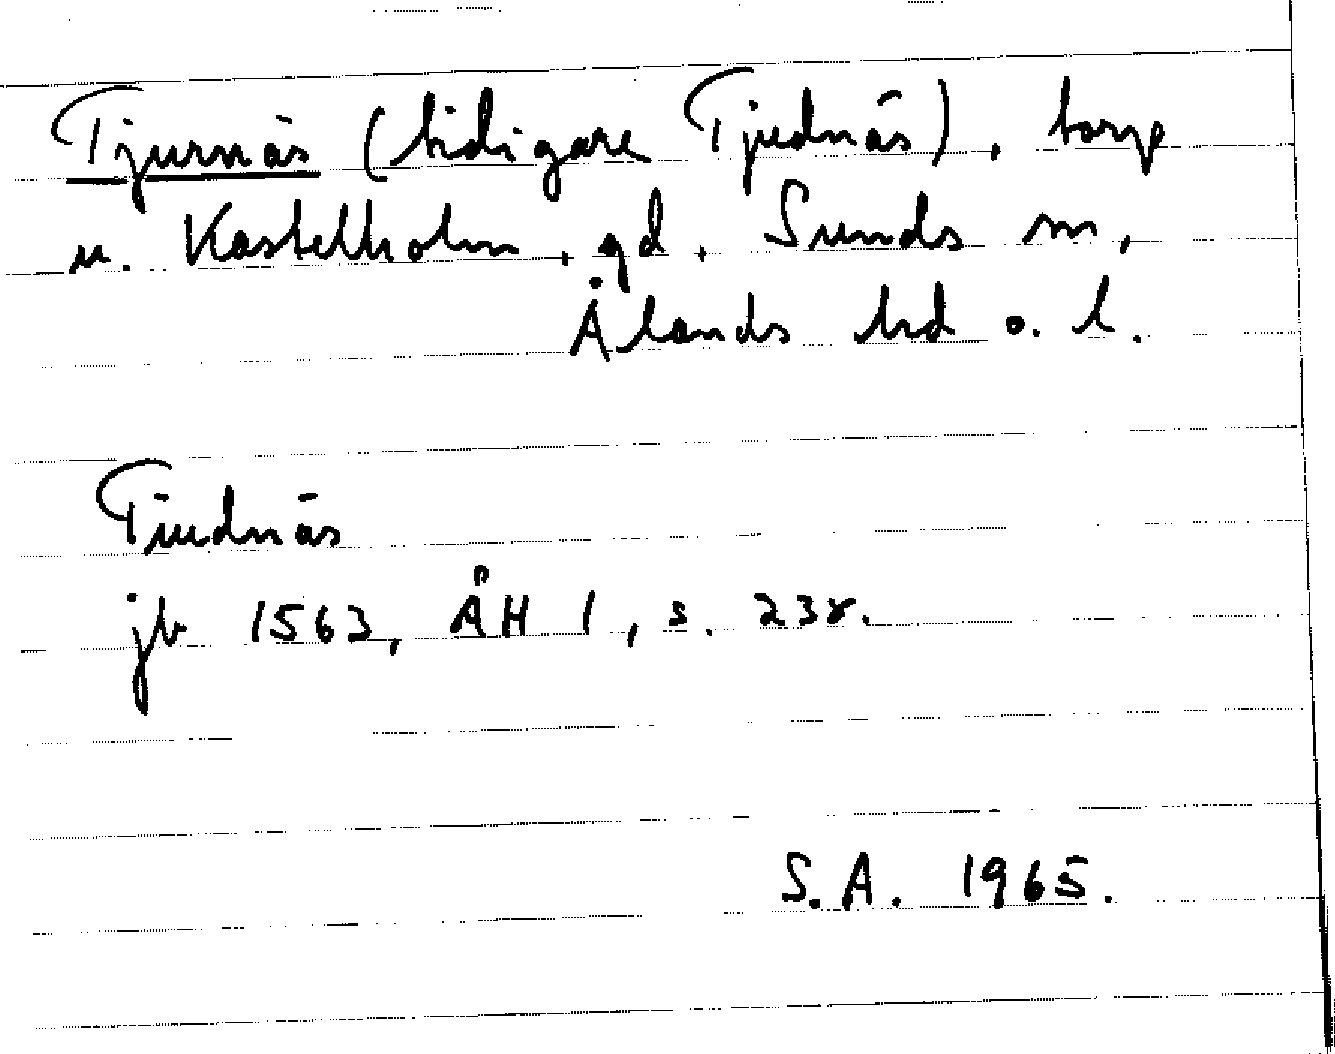 Tjurnäs (tidigare Tjudnäs), torp
u. Kastelholm, gd, Sunds sn,
Ålands hd o. l.
Tiudnäs
jb 1563, ÅH 1, s. 238.
S.A. 1965.